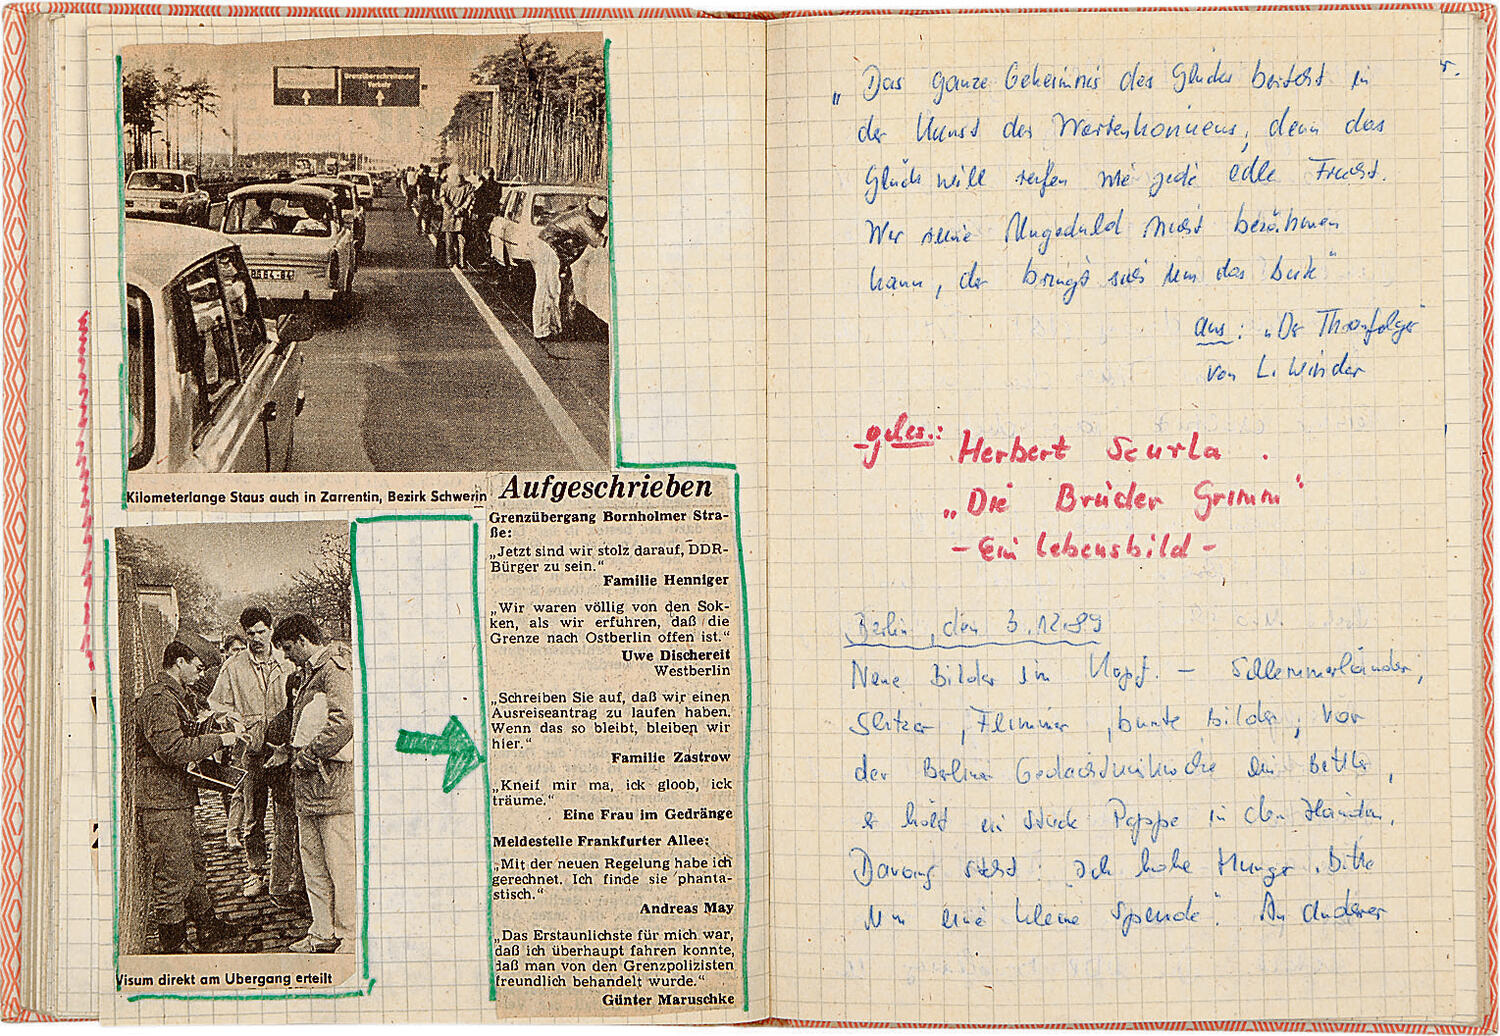 Grenzüberschreitender
Verkehr
Kilometerlange Staus auch in Zarrentin, Bezirk Schwerin
Visum direkt am Ubergang erteilt
Aufgeschrieben
Grenzübergang Bornholmer Stra-
ße:
„Jetzt sind wir stolz darauf, DDR-
Bürger zu sein.“
Familie Henniger
„Wir waren völlig von den Sok-
ken, als wir erfuhren, daß die
Grenze nach Ostberlin offen ist.“
Uwe Dischereit
Westberlin
„Schreiben Sie auf, daß wir einen
Ausreiseantrag zu laufen haben.
Wenn das so bleibt, bleiben wir
hier.“
Familie Zastrow
„Kneif mir ma, ick gloob, ick
träume.“
Eine Frau im Gedränge
Meldestelle Frankfurter Allee:
„Mit der neuen Regelung habe ich
gerechnet. Ich finde sie phanta-
stisch.“
Andreas May
„Das Erstaunlichste für mich war,
daß ich überhaupt fahren konnte,
daß man von den Grenzpolizisten
freundlich behandelt wurde.“
Günter Maruschke
„Das ganze Geheimnis des Glückes besteht in
der Kunst des Wartenkönnens, denn das
Glück will reifen wie jede edle Frucht.
Wer seine Ungeduld nicht bezähmen
kann, der bringt sich um das Beste“
aus: „Der Thronfolger“
von L. Winder
geles.: Herbert Scurla.
„Die Brüder Grimm“
- Ein Lebensbild -
Berlin, den 3.12.89
Neue Bilder im Kopf. - Schlemmerländer,
Glitzer, Flimmer, bunte Bilder, vor
der Berliner Gedächtniskirche ein Bettler,
er hält ein Stück Pappe in den Händen.
Darauf steht: „Ich habe Hunger. Bitte
um eine kleine Spende“. Ein anderer